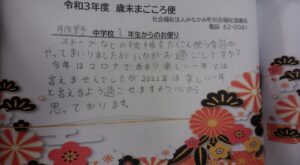 令和3年度 歳末まごころ便
社会福祉法人みなかみ町社会福祉協議会
電話 62-0081
月夜野 中学校 1 年生からのお便り
ストーブなどの暖房をたくさん使う季節が
やってまいりましたがいかがお過ごしですか?
今年はコロナであまり楽しい一年とは
言えませんでしたが2022年は楽しい一年
と言えるよう過ごせますよう心から
思っております。